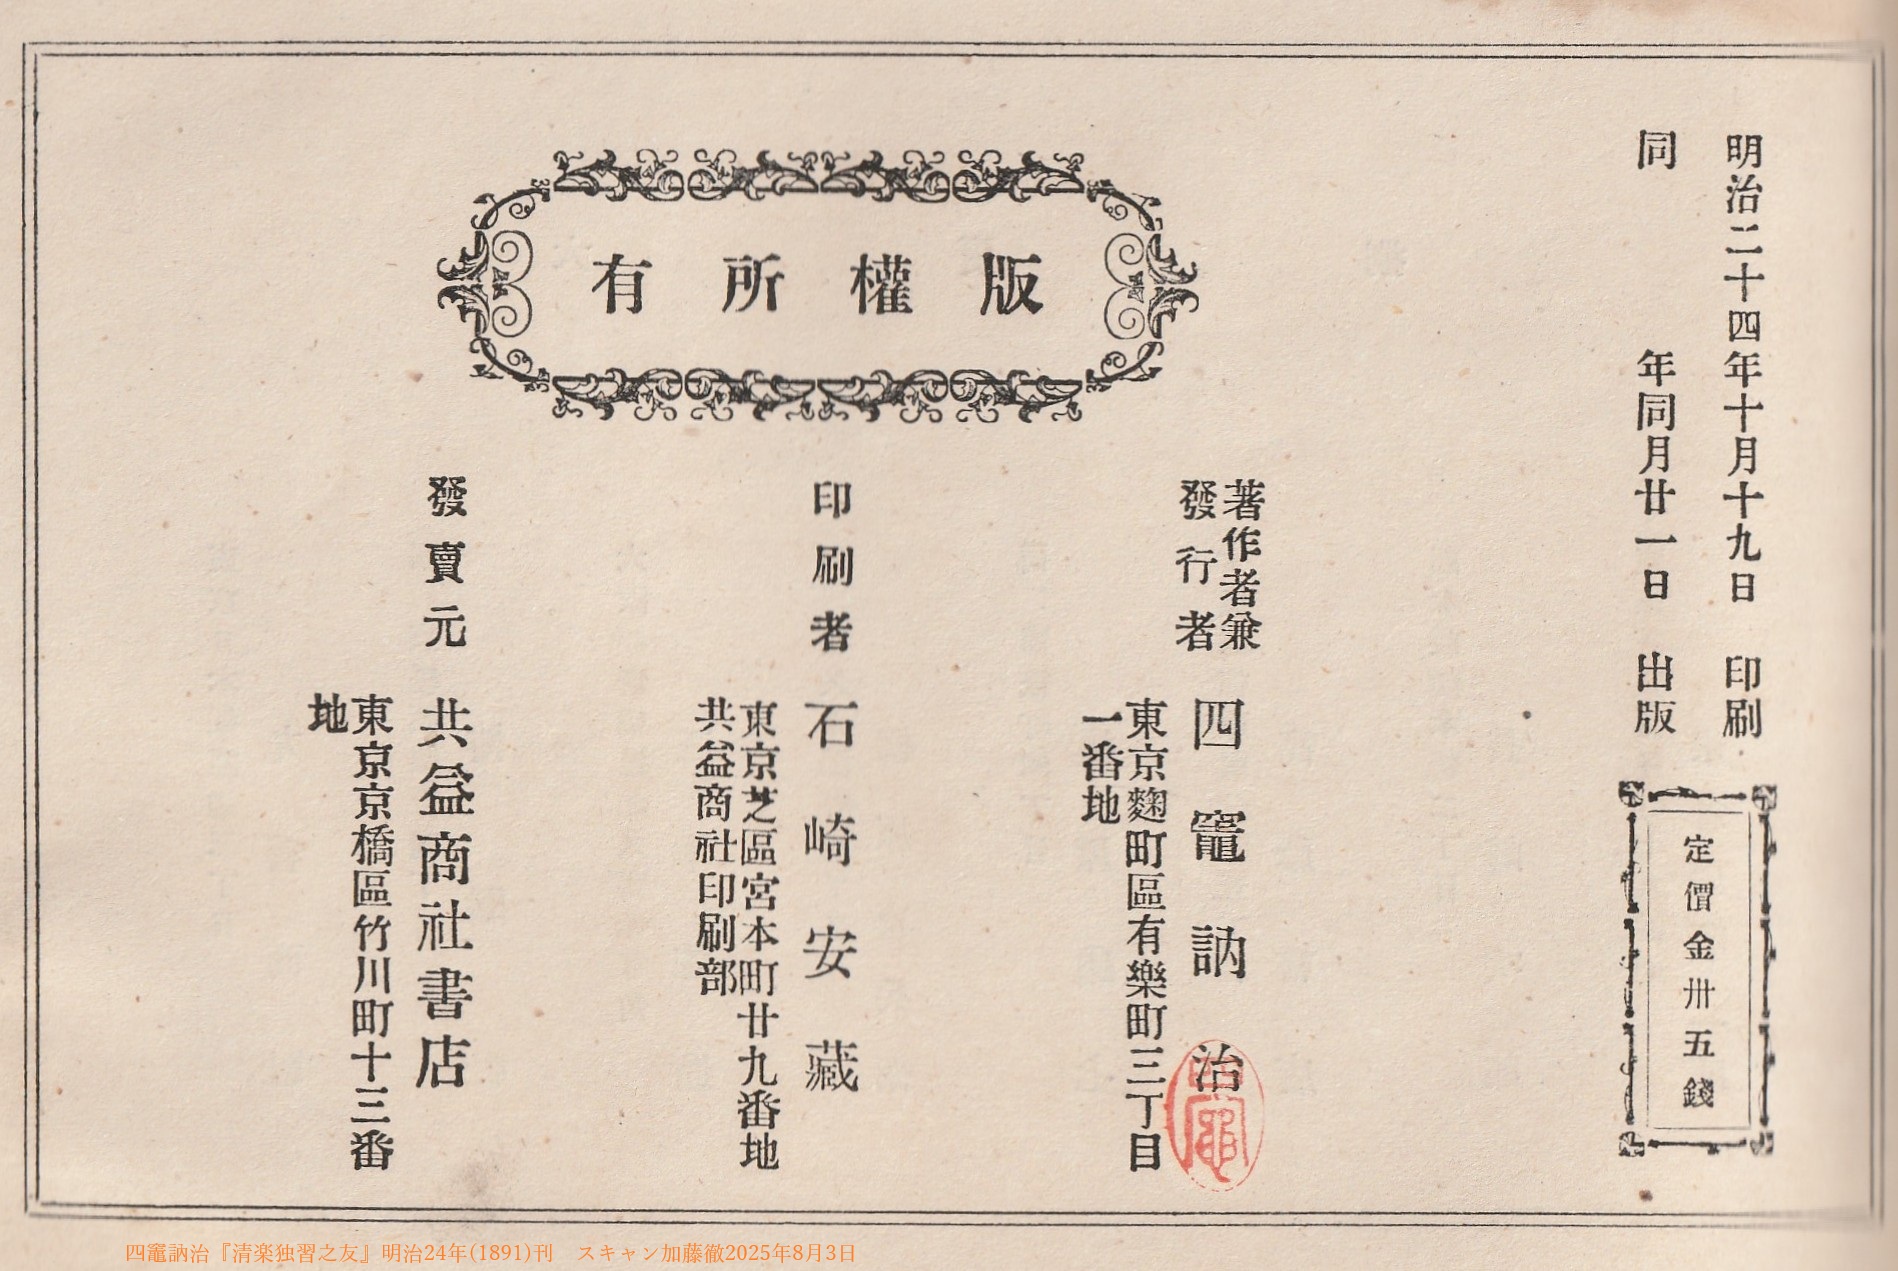 明治二十四年十月十九日 印刷
同 年同月廿一日 出版
定價金卅五錢
版權所有
著作者兼
發行者
四竈訥治
東京麴町區有樂町三丁目
一番地
印刷者
石崎安藏
東京芝區宮本町廿九番地
共益商社印刷部
發賣元
共益商社書店
東京京橋區竹川町十三番
地
四竈
四竈訥治『清楽独習之友』明治24年(1891)刊 スキャン加藤徹2025年8月3日